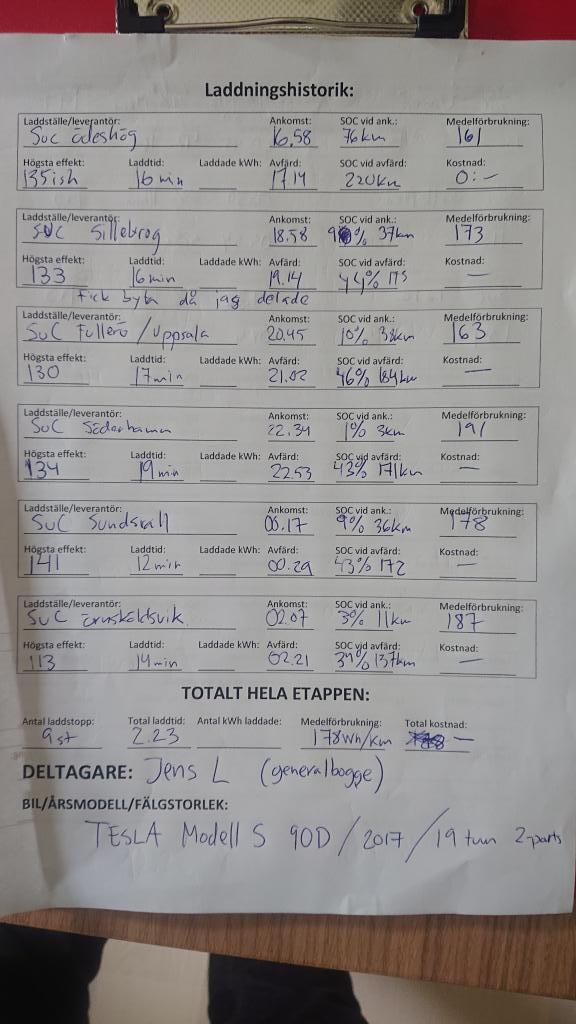 Laddningshistorik:
Laddställe/leverantör: Ankomst: SOC vid ank.: Medelförbrukning:
SuC Ödeshög 16.58 76km 161
Högsta effekt: Laddtid: Laddade kWh: Avfärd: SOC vid avfärd: Kostnad:
135ish 16min 17.14 220km 0:-
Laddställe/leverantör: Ankomst: SOC vid ank.: Medelförbrukning:
SUC Sillekrog 18.58 % 37km 173
Högsta effekt: Laddtid: Laddade kWh: Avfärd: SOC vid avfärd: Kostnad:
133 16min 19.14 44% 175 —
Fick byta då jag delade
Laddställe/leverantör: Ankomst: SOC vid ank.: Medelförbrukning:
SuC Fullerö/Uppsala 20.45 10% 38km 163
Högsta effekt: Laddtid: Laddade kWh: Avfärd: SOC vid avfärd: Kostnad:
130 17min 21.02 46% 184km —
Laddställe/leverantör: Ankomst: SOC vid ank.: Medelförbrukning:
SuC Söderhamn 22.34 1% 3km 191
Högsta effekt: Laddtid: Laddade kWh: Avfärd: SOC vid avfärd: Kostnad:
134 19min 22.53 43% 171km —
Laddställe/leverantör: Ankomst: SOC vid ank.: Medelförbrukning:
SuC Sundsvall 00.17 9% 36km 178
Högsta effekt: Laddtid: Laddade kWh: Avfärd: SOC vid avfärd: Kostnad:
141 12min 00.29 43% 172 —
Laddställe/leverantör: Ankomst: SOC vid ank.: Medelförbrukning:
SuC Örnsköldsvik 02.07 3% 11km 187
Högsta effekt: Laddtid: Laddade kWh: Avfärd: SOC vid avfärd: Kostnad:
113 14min 02.21 34% 137km —
TOTALT HELA ETAPPEN:
Antal laddstopp: Total laddtid: Antal kWh laddade: Medelförbrukning: Total kostnad:
9st 2.23 178Wh/km —
DELTAGARE: Jens L (generalbogge)
BIL/ÅRSMODELL/FÄLGSTORLEK:
TESLA Modell S 90D / 2017 / 19 tum 2-parts